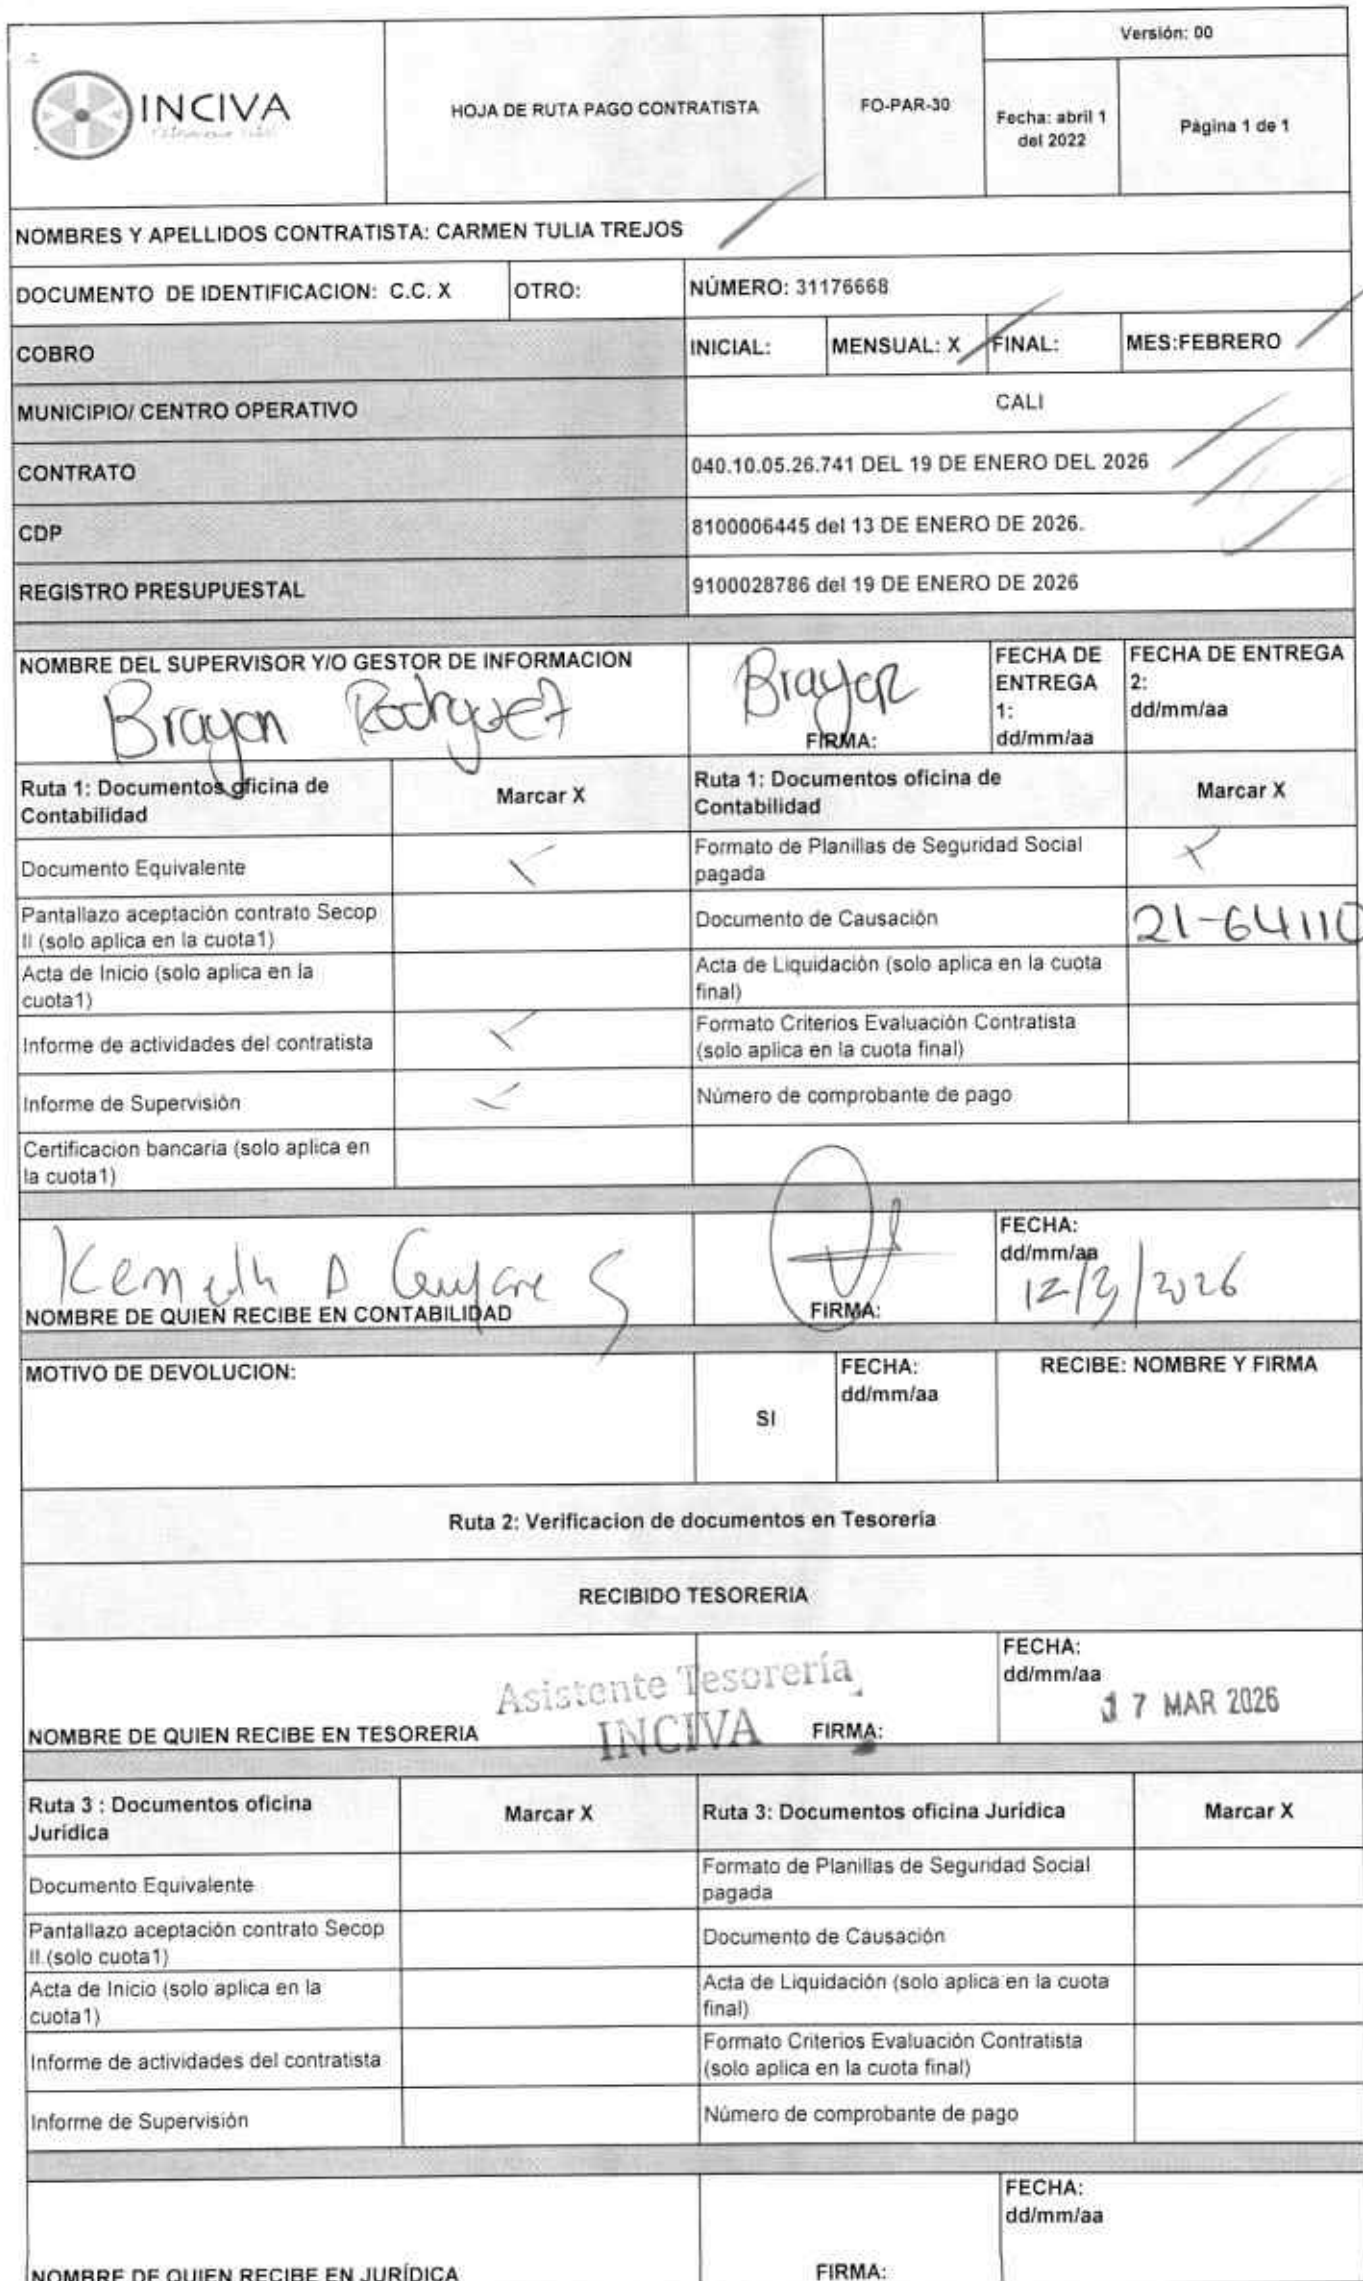 Versión: 00
INCIVA
HOJA DE RUTA PAGO CONTRATISTA
FO-PAR-30
Fecha: abril 1
del 2022
Página 1 de 1
NOMBRES Y APELLIDOS CONTRATISTA: CARMEN TULIA TREJOS
DOCUMENTO DE IDENTIFICACION: C.C. X
OTRO:
NÚMERO: 31176668
COBRO
INICIAL:
MENSUAL: X
FINAL:
MES:FEBRERO
MUNICIPIO/ CENTRO OPERATIVO
CALI
CONTRATO
040.10.05.26.741 DEL 19 DE ENERO DEL 2026
CDP
8100006445 del 13 DE ENERO DE 2026.
REGISTRO PRESUPUESTAL
9100028786 del 19 DE ENERO DE 2026
NOMBRE DEL SUPERVISOR Y/O GESTOR DE INFORMACION
Brayan Rodriguez
Brayan
FIRMA:
FECHA DE
ENTREGA
1:
dd/mm/aa
FECHA DE ENTREGA
2:
dd/mm/aa
Ruta 1: Documentos oficina de
Contabilidad
Marcar X
Ruta 1: Documentos oficina de
Contabilidad
Marcar X
Documento Equivalente
Formato de Planillas de Seguridad Social
pagada
X
Pantallazo aceptación contrato Secop
II (solo aplica en la cuota1)
Documento de Causación
21-64110
Acta de Inicio (solo aplica en la
cuota1)
Acta de Liquidación (solo aplica en la cuota
final)
Informe de actividades del contratista
Formato Criterios Evaluación Contratista
(solo aplica en la cuota final)
Informe de Supervisión
Número de comprobante de pago
Certificacion bancaria (solo aplica en
la cuota1)
Kenneth D
NOMBRE DE QUIEN RECIBE EN CONTABILIDAD
FIRMA:
FECHA:
dd/mm/aa
12/3/2026
MOTIVO DE DEVOLUCION:
SI
FECHA:
dd/mm/aa
RECIBE: NOMBRE Y FIRMA
Ruta 2: Verificacion de documentos en Tesoreria
RECIBIDO TESORERIA
Asistente Tesorería
INCIVA
NOMBRE DE QUIEN RECIBE EN TESORERIA
FIRMA:
FECHA:
dd/mm/aa
17 MAR 2026
Ruta 3 : Documentos oficina
Jurídica
Marcar X
Ruta 3: Documentos oficina Jurídica
Marcar X
Documento Equivalente
Formato de Planillas de Seguridad Social
pagada
Pantallazo aceptación contrato Secop
II.(solo cuota1)
Documento de Causación
Acta de Inicio (solo aplica en la
cuota1)
Acta de Liquidación (solo aplica en la cuota
final)
Informe de actividades del contratista
Formato Criterios Evaluación Contratista
(solo aplica en la cuota final)
Informe de Supervisión
Número de comprobante de pago
NOMBRE DE QUIEN RECIBE EN JURÍDICA
FIRMA:
FECHA:
dd/mm/aa